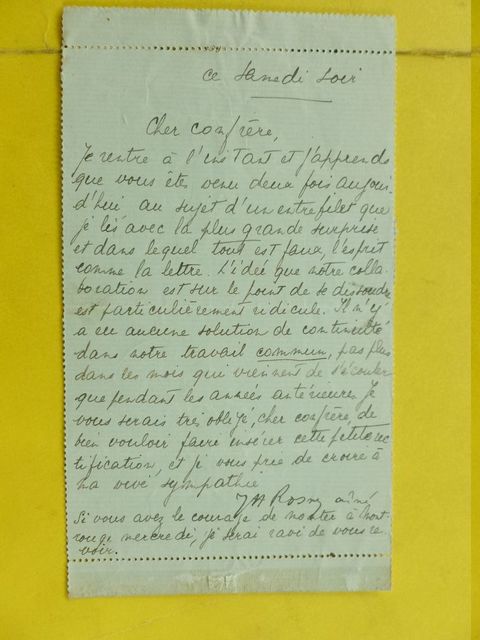 ce Samedi soir
Cher confrère,
Je rentre à l'instant et j'apprends
que vous êtes venu deux fois aujour-
d'hui au sujet d'un entrefilet que
je lis avec la plus grande surprise
et dans lequel tout est faux, l'esprit
comme la lettre. L'idée que notre colla-
boration est sur le point de se dissoudre
est particulièrement ridicule. Il n'y
a eu aucune solution de continuité
dans notre travail commun, pas plus
dans les mois qui viennent de s'écouler
que pendant les années antérieures. Je
vous serais très obligé, cher confrère, de
bien vouloir faire insérer cette petite rec
tification, et je vous prie de croire à
ma vive sympathie
JH Rosny aîné
Si vous avez le courage de monter à Mont-
rouge mercredi, je serai ravi de vous re
voir.